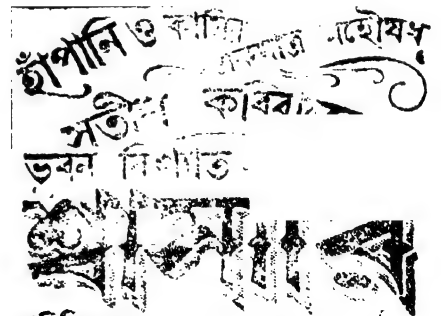 হাঁপানি ও কাসির একমাত্র মহৌষধ
সতীশ কবির
ভুবন বিখ্যাত
শ্বাসারি